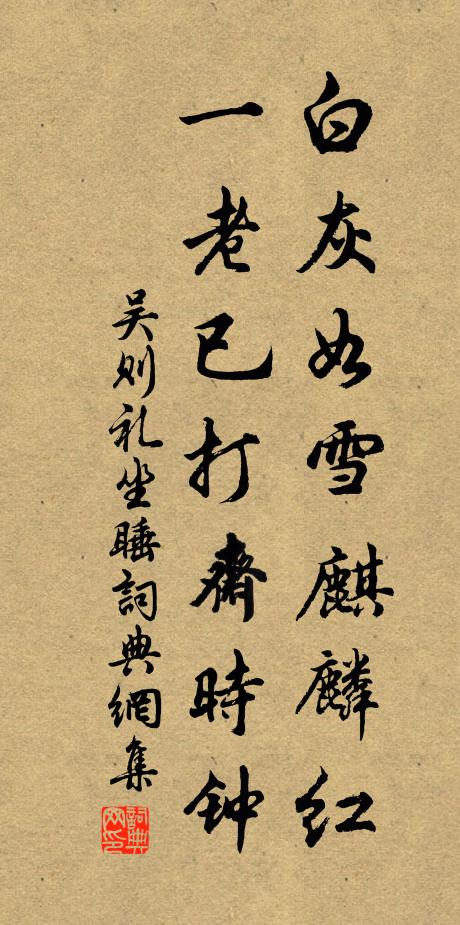 白灰如雪麒麟红
一老已打斋時钟
吴则礼坐睡詞典網集
詞典网印